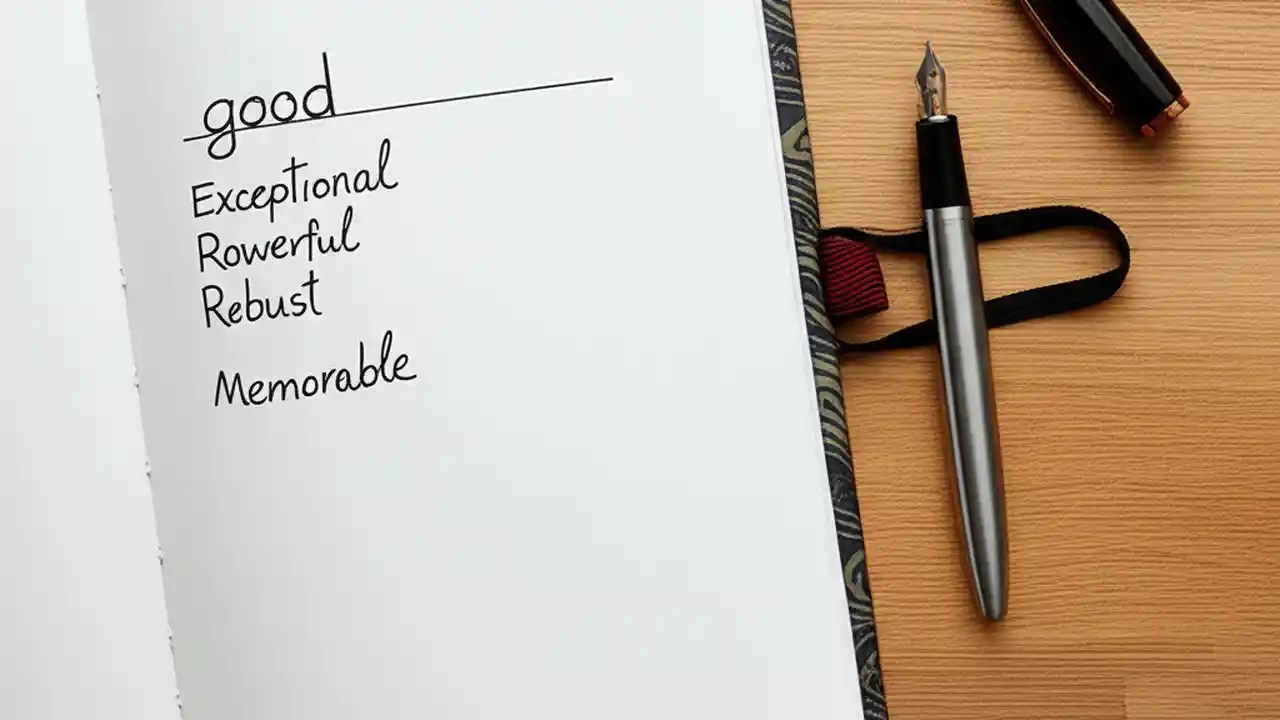 good
Exceptional
Rowerful
Rebust
Memorable